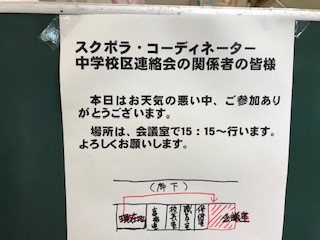 スクボラ・コーディネーター
中学校区連絡会の関係者の皆様
本日はお天気の悪い中、ご参加あり
がとうございます。
場所は、会議室で15：15～行います。
よろしくお願いします。
(廊下)
事務室
校長室
職員室
保健室
会議室